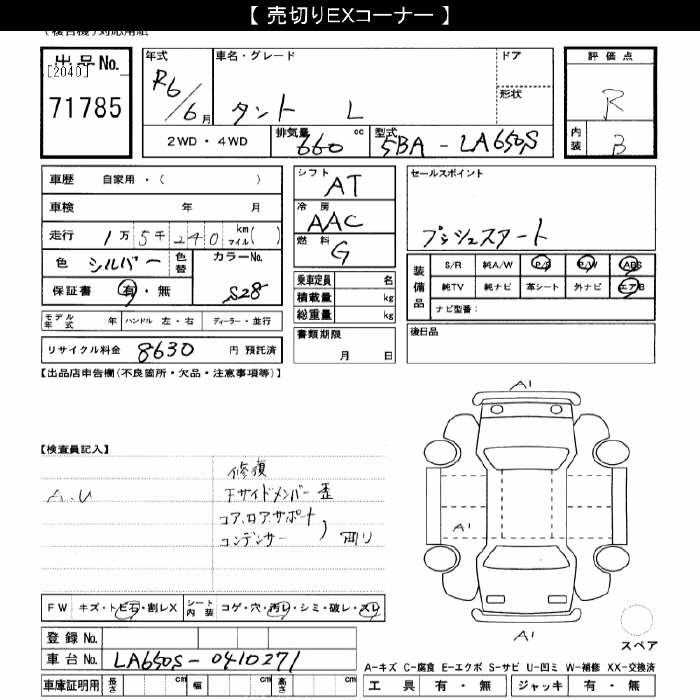 【 売切りEXコーナー 】
出品No.
[2040]
71785
年式
R6/6月
車名・グレード
タント L
ドア
形状
2WD・4WD
排気量 660 cc
型式 5BA-LA650S
評価点
R
内装 B
車歴 自家用・( )
車検 年 月
走行 1万5千240 km マイル( )
色 シルバー 色替
カラーNo. S28
保証書 有・無
シフト AT
冷房 AAC
燃料 G
乗車定員 名
積載量 kg
総重量 kg
書類期限
月 日
セールスポイント
プッシュスタート
装備品
S/R 純A/W P/S P/W ABS
純TV 純ナビ 革シート 外ナビ エアB
ナビ型番:
後日品
モデル年式 年 ハンドル 左・右 ディーラー・並行
リサイクル料金 8630 円 預託済
【出品店申告欄(不良箇所・欠品・注意事項等)】
【検査員記入】
A.U
修復
Fサイドメンバー歪
コア、ロアサポート
コンデンサー
曲り
A1
A1
A1
FW キズ・トビ石・割レX
シート内装 コゲ・穴・汚レ・シミ・破レ・スレ
登録No.
車台No. LA650S-0410271
車庫証明用 長さ cm 幅 cm 高さ cm
スペア
A-キズ C-腐食 E-エクボ S-サビ U-凹ミ W-補修 XX-交換済
工具 有・無 ジャッキ 有・無